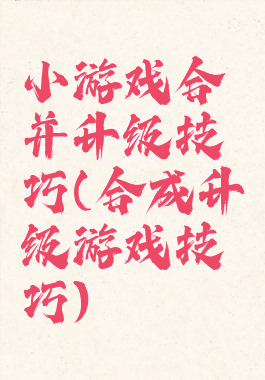 小游戏合
并升级技
巧(合成升
级游戏技
巧)